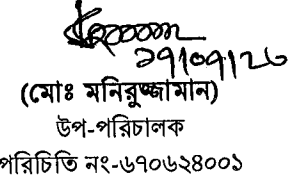 ১৭/০৭/২৩
(মোঃ মনিরুজ্জামান)
উপ-পরিচালক
পরিচিতি নং-৬৭০৬২৪০০১